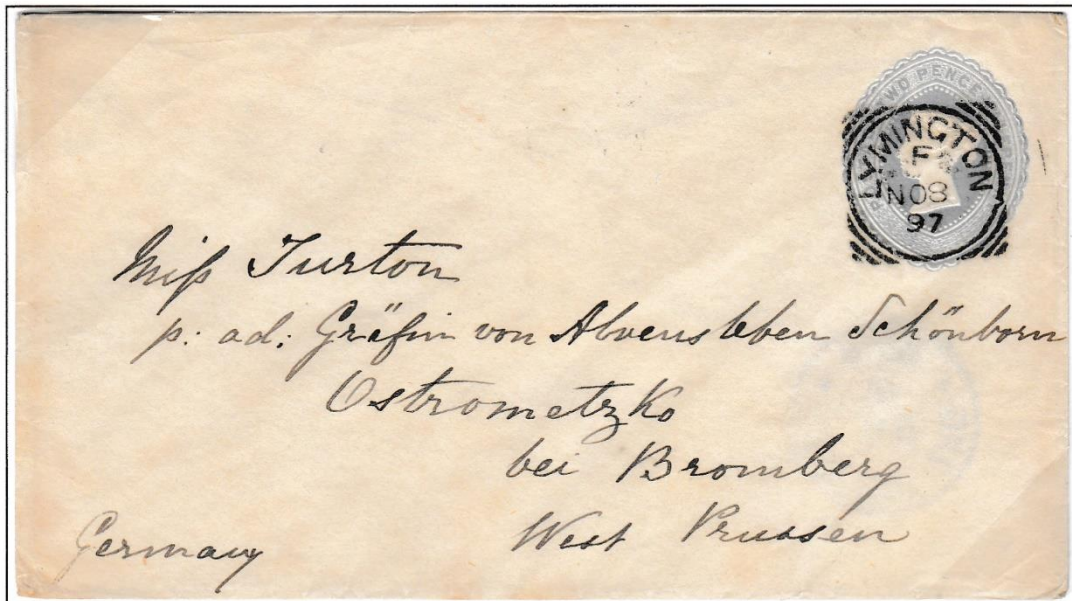 TWO PENCE
LYMINGTON
F
NO 8
97
Miss Turton
p: ad: Gräfin von Alvensleben Schönborn
Ostrometzko
bei Bromberg
West Prussen
Germany